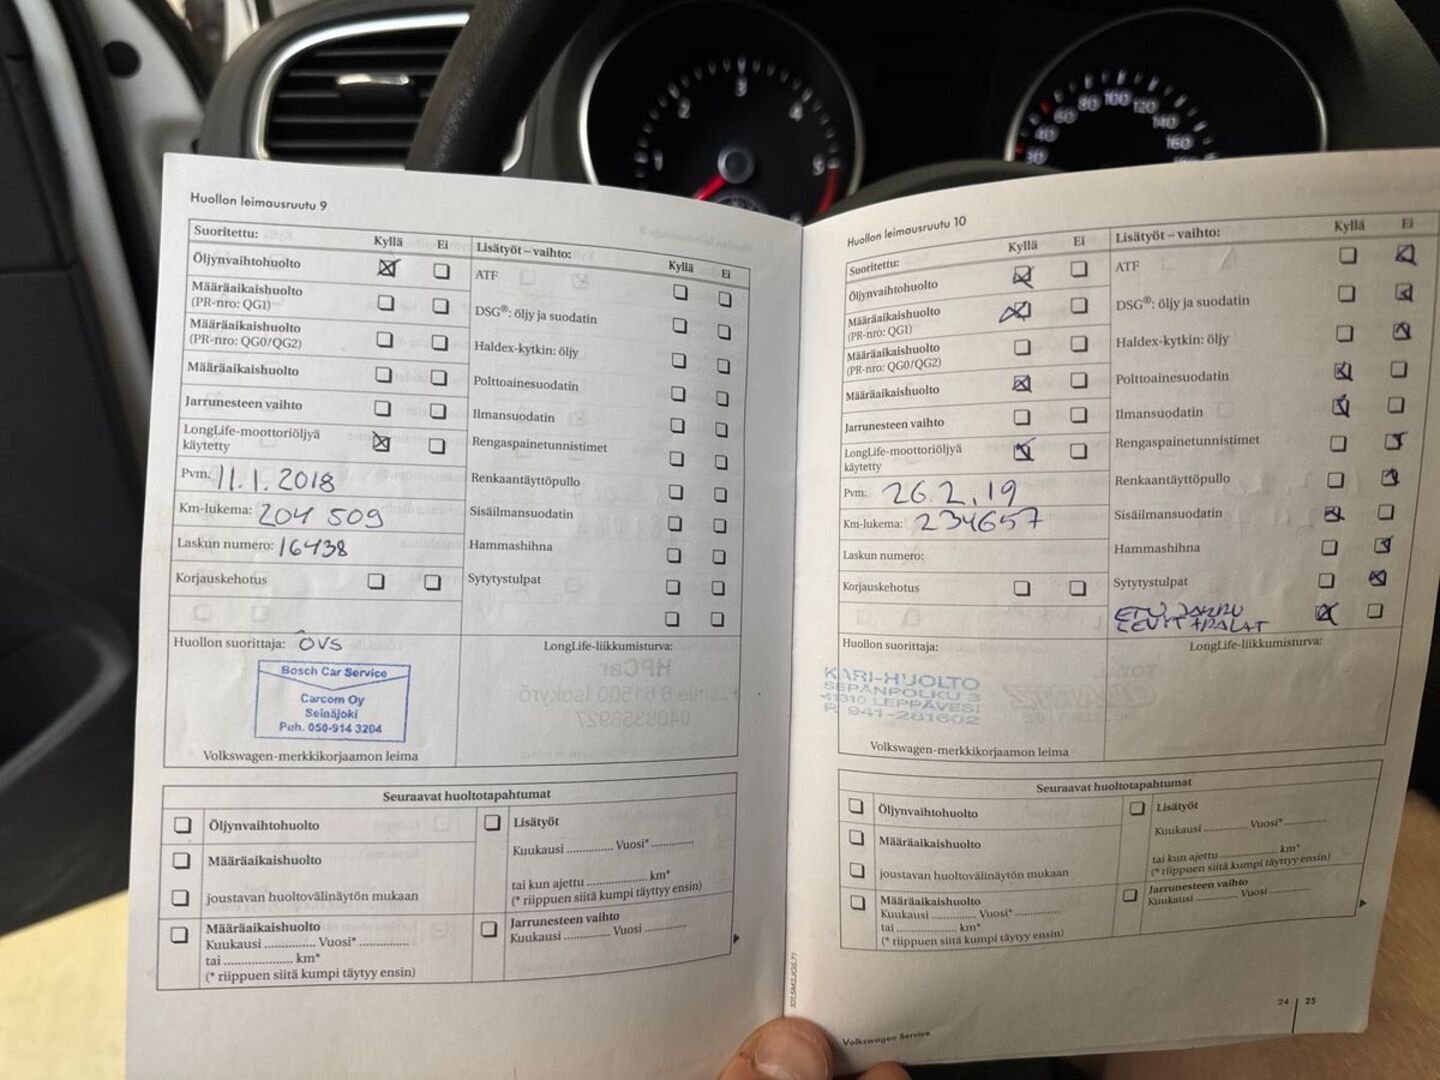 1
2
3
4
5
40
60
80
100
120
140
160
Huollon leimausruutu 9
Suoritettu:
Kyllä
Ei
Öljynvaihtohuolto
Määräaikaishuolto
(PR-nro: QG1)
Määräaikaishuolto
(PR-nro: QG0/QG2)
Määräaikaishuolto
Jarrunesteen vaihto
LongLife-moottoriöljyä
käytetty
Pvm. 11.1.2018
Km-lukema: 204 509
Laskun numero: 16438
Korjauskehotus
Huollon suorittaja: ÖVS
Bosch Car Service
Carcom Oy
Seinäjoki
Puh. 050-914 3204
Volkswagen-merkkikorjaamon leima
Lisätyöt – vaihto:
Kyllä
Ei
ATF
DSG®: öljy ja suodatin
Haldex-kytkin: öljy
Polttoainesuodatin
Ilmansuodatin
Rengaspainetunnistimet
Renkaantäyttöpullo
Sisäilmansuodatin
Hammashihna
Sytytystulpat
LongLife-liikkumisturva:
Seuraavat huoltotapahtumat
Öljynvaihtohuolto
Määräaikaishuolto
joustavan huoltovälinäytön mukaan
Määräaikaishuolto
Kuukausi .............. Vuosi* ..............
tai .................... km*
(* riippuen siitä kumpi täytyy ensin)
Lisätyöt
Kuukausi ............. Vuosi* ............
tai kun ajettu .................. km*
(* riippuen siitä kumpi täytyy ensin)
Jarrunesteen vaihto
Kuukausi ............. Vuosi ............
Huollon leimausruutu 10
Suoritettu:
Kyllä
Ei
Öljynvaihtohuolto
Määräaikaishuolto
(PR-nro: QG1)
Määräaikaishuolto
(PR-nro: QG0/QG2)
Määräaikaishuolto
Jarrunesteen vaihto
LongLife-moottoriöljyä
käytetty
Pvm. 26.2.19
Km-lukema: 234657
Laskun numero:
Korjauskehotus
Huollon suorittaja:
KARI-HUOLTO
SEPÄNPOLKU 3
41310 LEPPÄVESI
P. 941-281602
Volkswagen-merkkikorjaamon leima
Lisätyöt – vaihto:
Kyllä
Ei
ATF
DSG®: öljy ja suodatin
Haldex-kytkin: öljy
Polttoainesuodatin
Ilmansuodatin
Rengaspainetunnistimet
Renkaantäyttöpullo
Sisäilmansuodatin
Hammashihna
Sytytystulpat
ETU JARRU
LEVYT + PALAT
LongLife-liikkumisturva:
Seuraavat huoltotapahtumat
Öljynvaihtohuolto
Määräaikaishuolto
joustavan huoltovälinäytön mukaan
Määräaikaishuolto
Kuukausi ............ Vuosi* ............
tai .................. km*
(* riippuen siitä kumpi täytyy ensin)
Lisätyöt
Kuukausi ............ Vuosi* ............
tai kun ajettu .................. km*
(* riippuen siitä kumpi täytyy ensin)
Jarrunesteen vaihto
Kuukausi ............ Vuosi ............
24 | 25
Volkswagen Service